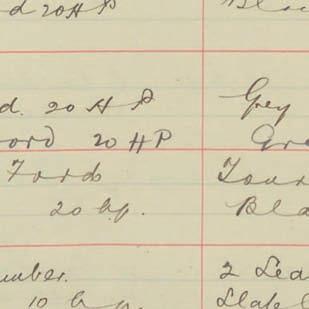 d 20HP
d. 20 HP Grey
ord 20 HP Gr
Fords Tour
20 hp. Bla
umber. 2 Sea
10 h.p. Slate